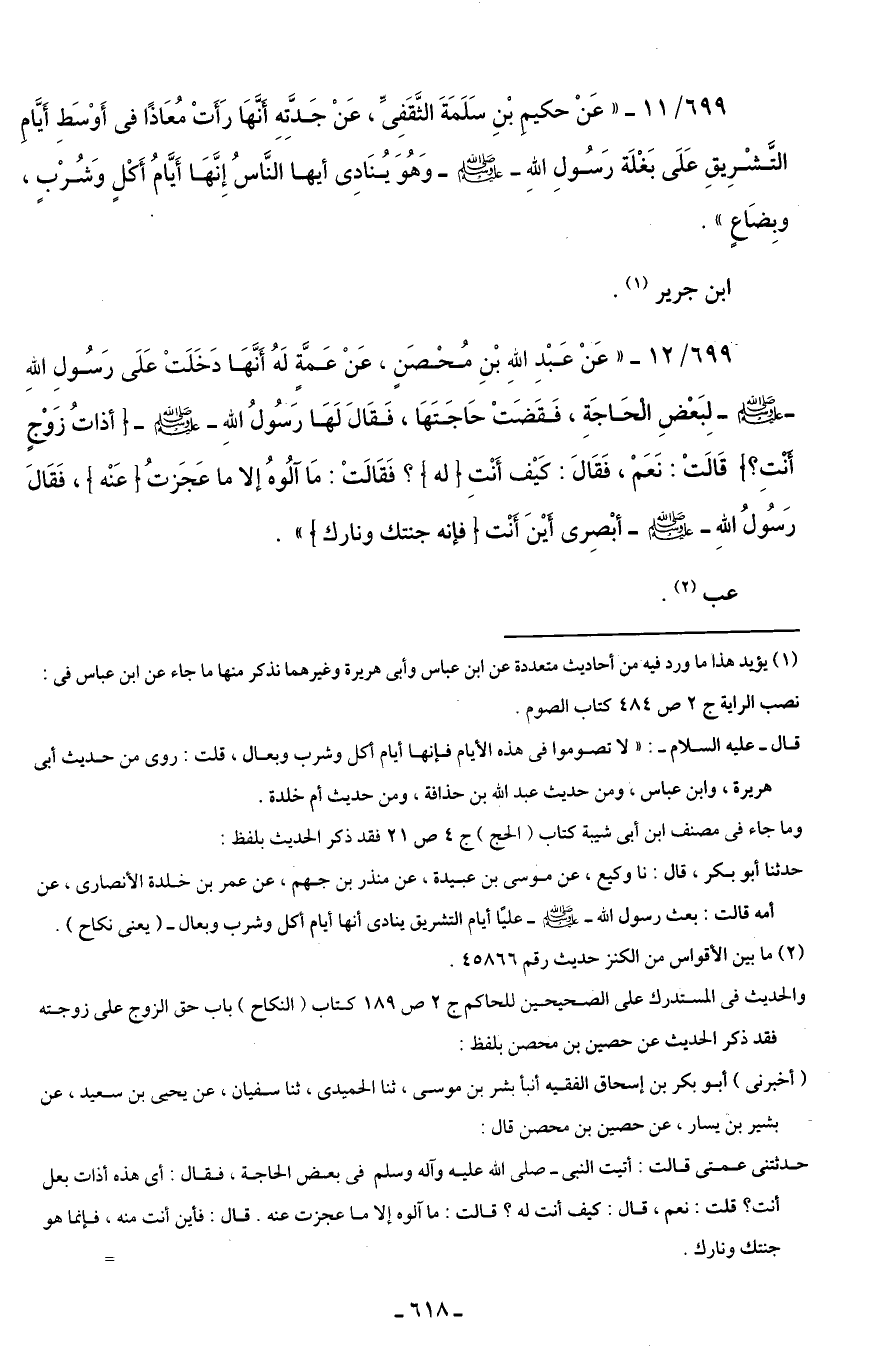 ١١/٦٩٩ ـ « عَنْ حكيمِ بْنِ سَلَمَةَ الثَّقَفِىِّ ، عَنْ جَدَّتِهِ أَنَّهَا رَأَتْ مُعَاذًا فى أَوْسَطِ أَيَّامِ
التَّشْرِيقِ عَلَى بَغْلَة رَسُولِ اللهِ ـ ﷺ ـ وَهُوَ يُنَادِى أيها النَّاسُ إِنَّهَا أَيَّامُ أَكْلٍ وَشُرْبٍ ،
وبِضَاعٍ » .
ابن جرير (١) .
١٢/٦٩٩ ـ « عَنْ عَبْدِ اللهِ بْنِ مُحْصَنٍ ، عَنْ عَمَّةٍ لَهُ أَنَّهَا دَخَلَتْ عَلَى رَسُولِ اللهِ
ـ ﷺ ـ لِبَعْضِ الْحَاجَةِ ، فَقَضَتْ حَاجَتَهَا ، فَقَالَ لَهَا رَسُولُ اللهِ ـ ﷺ ـ { أذاتُ زَوْجٍ
أَنْتِ؟} قَالَتْ : نَعَمْ ، فَقَالَ : كَيْف أنْتِ { له } ؟ فَقَالَتْ : مَا آلُوهُ إلا ما عَجَزتُ { عَنْه } ، فَقَالَ
رَسُولُ اللهِ ـ ﷺ ـ أبْصِرى أَيْنَ أَنْت { فإنه جنتك ونارك } » .
عب (٢) .
(١) يؤيد هذا ما ورد فيه من أحاديث متعددة عن ابن عباس وأبى هريرة وغيرهما نذكر منها ما جاء عن ابن عباس فى :
نصب الراية ج ٢ ص ٤٨٤ كتاب الصوم .
قال ـ عليه السلام ـ : « لا تصوموا فى هذه الأيام فإنها أيام أكل وشرب وبعال ، قلت : روى من حديث أبى
هريرة ، وابن عباس ، ومن حديث عبد الله بن حذافة ، ومن حديث أم خلدة .
وما جاء فى مصنف ابن أبى شيبة كتاب ( الحج ) ج ٤ ص ٢١ فقد ذكر الحديث بلفظ :
حدثنا أبو بكر ، قال : نا وكيع ، عن موسى بن عبيدة ، عن منذر بن جهم ، عن عمر بن خلدة الأنصارى ، عن
أمه قالت : بعث رسول الله ـ ﷺ ـ عليًا أيام التشريق ينادى أنها أيام أكل وشرب وبعال ـ ( يعنى نكاح ) .
(٢) ما بين الأقواس من الكنز حديث رقم ٤٥٨٦٦ .
والحديث فى المستدرك على الصحيحين للحاكم ج ٢ ص ١٨٩ كتاب ( النكاح ) باب حق الزوج على زوجته
فقد ذكر الحديث عن حصين بن محصن بلفظ :
( أخبرنى ) أبو بكر بن إسحاق الفقيه أنبأ بشر بن موسى ، ثنا الحميدى ، ثنا سفيان ، عن يحيى بن سعيد ، عن
بشير بن يسار ، عن حصين بن محصن قال :
حدثتنى عمتى قالت : أتيت النبى ـ صلى الله عليه وآله وسلم فى بعض الحاجة ، فقال : أى هذه أذات بعل
أنت؟ قلت : نعم ، قال : كيف أنت له ؟ قالت : ما آلوه إلا ما عجزت عنه . قال : فأين أنت منه ، فإنما هو
جنتك ونارك .
=
ـ ٦١٨ ـ